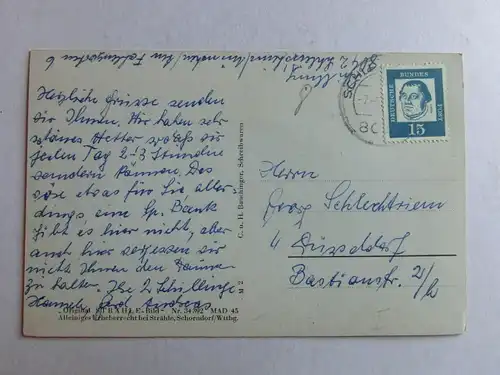 Herzliche Grüsse senden
wir Ihnen. Wir haben sehr
schönes Wetter sodaß wir
jeden Tag 2-3 Stunden
wandern können. Das
wäre etwas für Sie aller-
dings eine Sp. Bank
gibt es hier nicht, aber
auch hier vergessen wir
nicht Ihnen den Daumen
zu halten. Ihre 2 Schillinge
und Andreas
C. u. H. Deschinger, Schreibwaren
M 2
"Original STRÄHLE-Bild" Nr. 34892 MAD 45
Alleiniges Urheberrecht bei Strähle, Schorndorf/Wttbg.
DEUTSCHE BUNDES POST
15
80
Herrn
Georg Schlechtriem
4 Düsseldorf
Bastionstr. 21/b